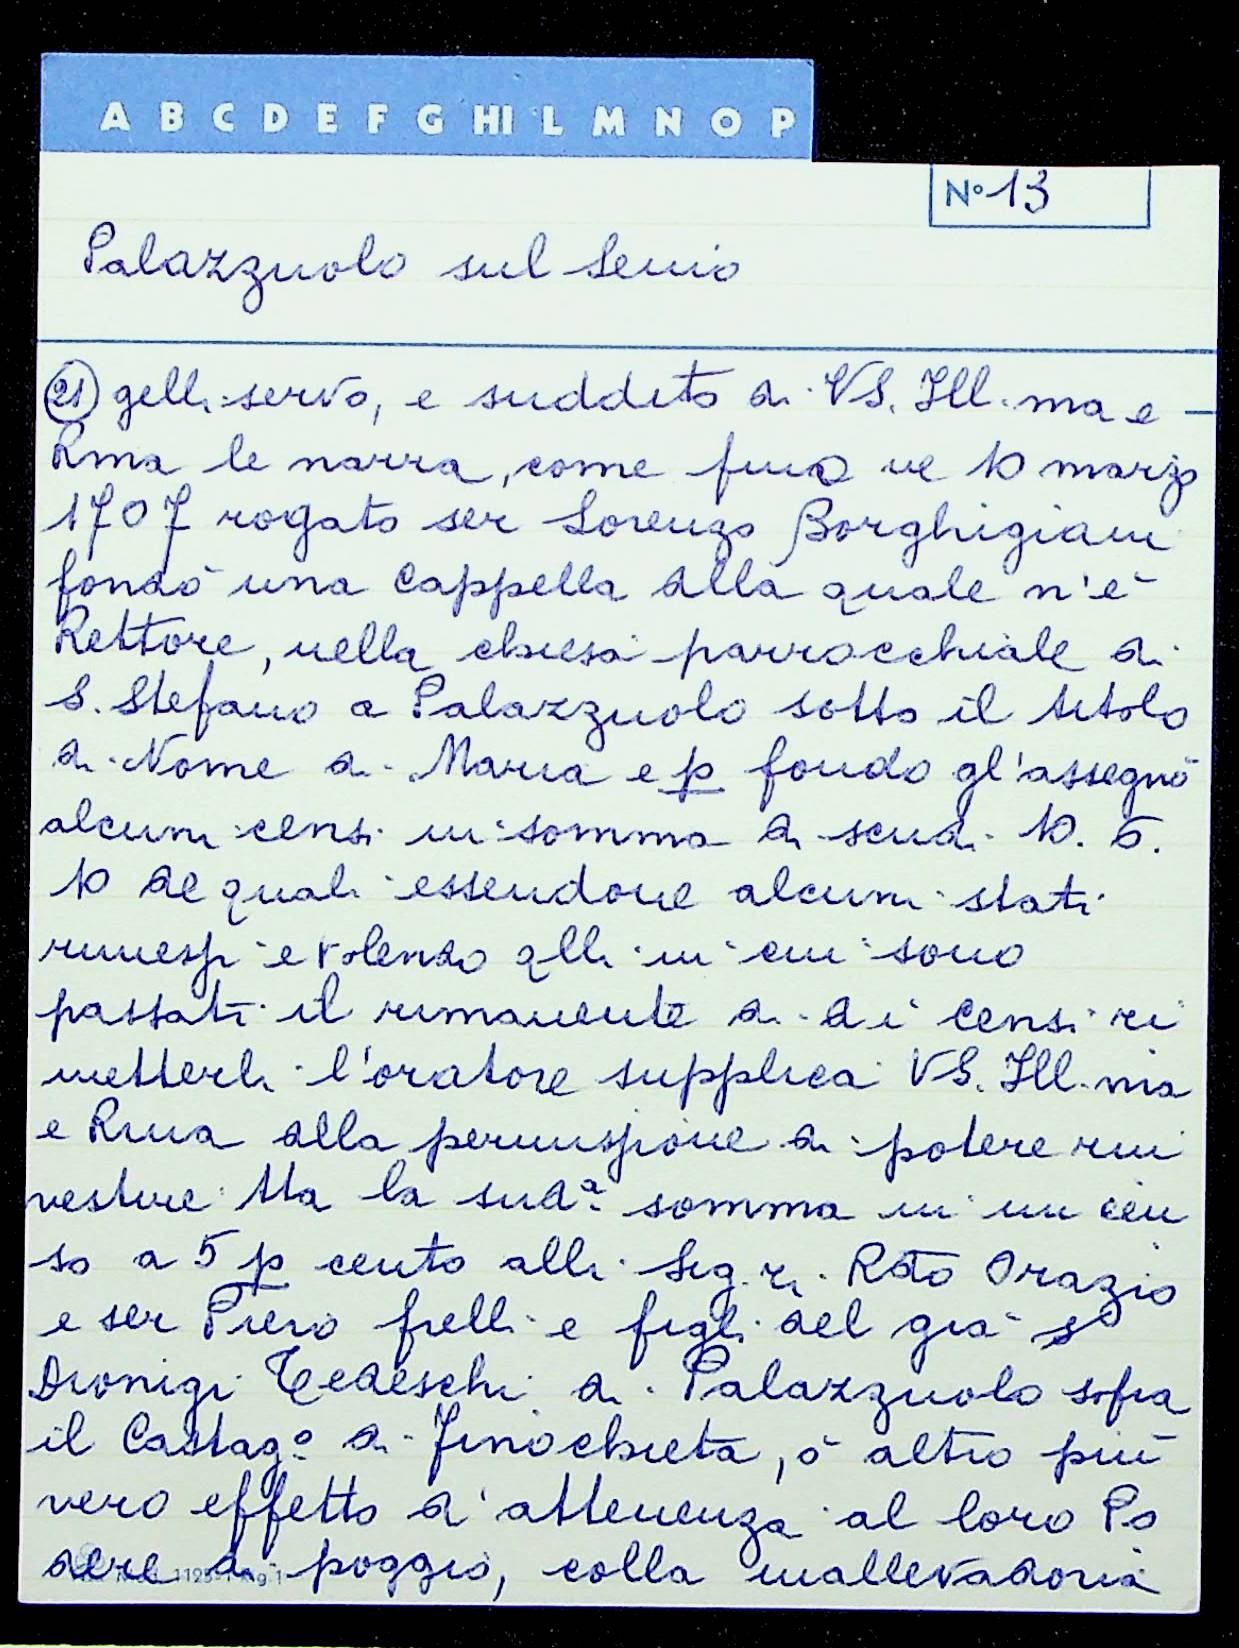 A B C D E F G HI L M N O P
N° 13
Palazzuolo sul Senio
(21) gelli servo, e suddito di VS. Ill.ma e
Rma le narra, come fino ne 10 marzo
1707 rogato ser Lorenzo Borghigiani
fondò una Cappella alla quale n'è
Rettore, nella chiesa parrocchiale di
S. Stefano a Palazzuolo sotto il titolo
di Nome di Maria e p fondo gl'assegnò
alcuni censi in somma di scudi 10. 5.
10 de quali essendone alcuni stati
rimessi e volendo qlli in cui sono
passati il rimanente di di censi ri
metterli l'oratore supplica VS. Ill.ma
e Rma alla permissione di potere rin
vestire tta la sud.a somma in un cen
so a 5 p cento alli Sig.ri Rdo Orazio
e ser Piero frelli e figli del già S
Dionigi Tedeschi di Palazzuolo sopra
il Castag.o di Finochieta, ò altro più
vero effetto d'attenenza al loro Po
dere di poggio, colla mallevadoria